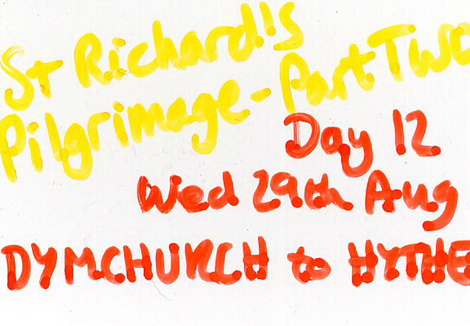 St Richard's
Pilgrimage - Part Two
Day 12
Wed 29th Aug
DYMCHURCH to HYTHE